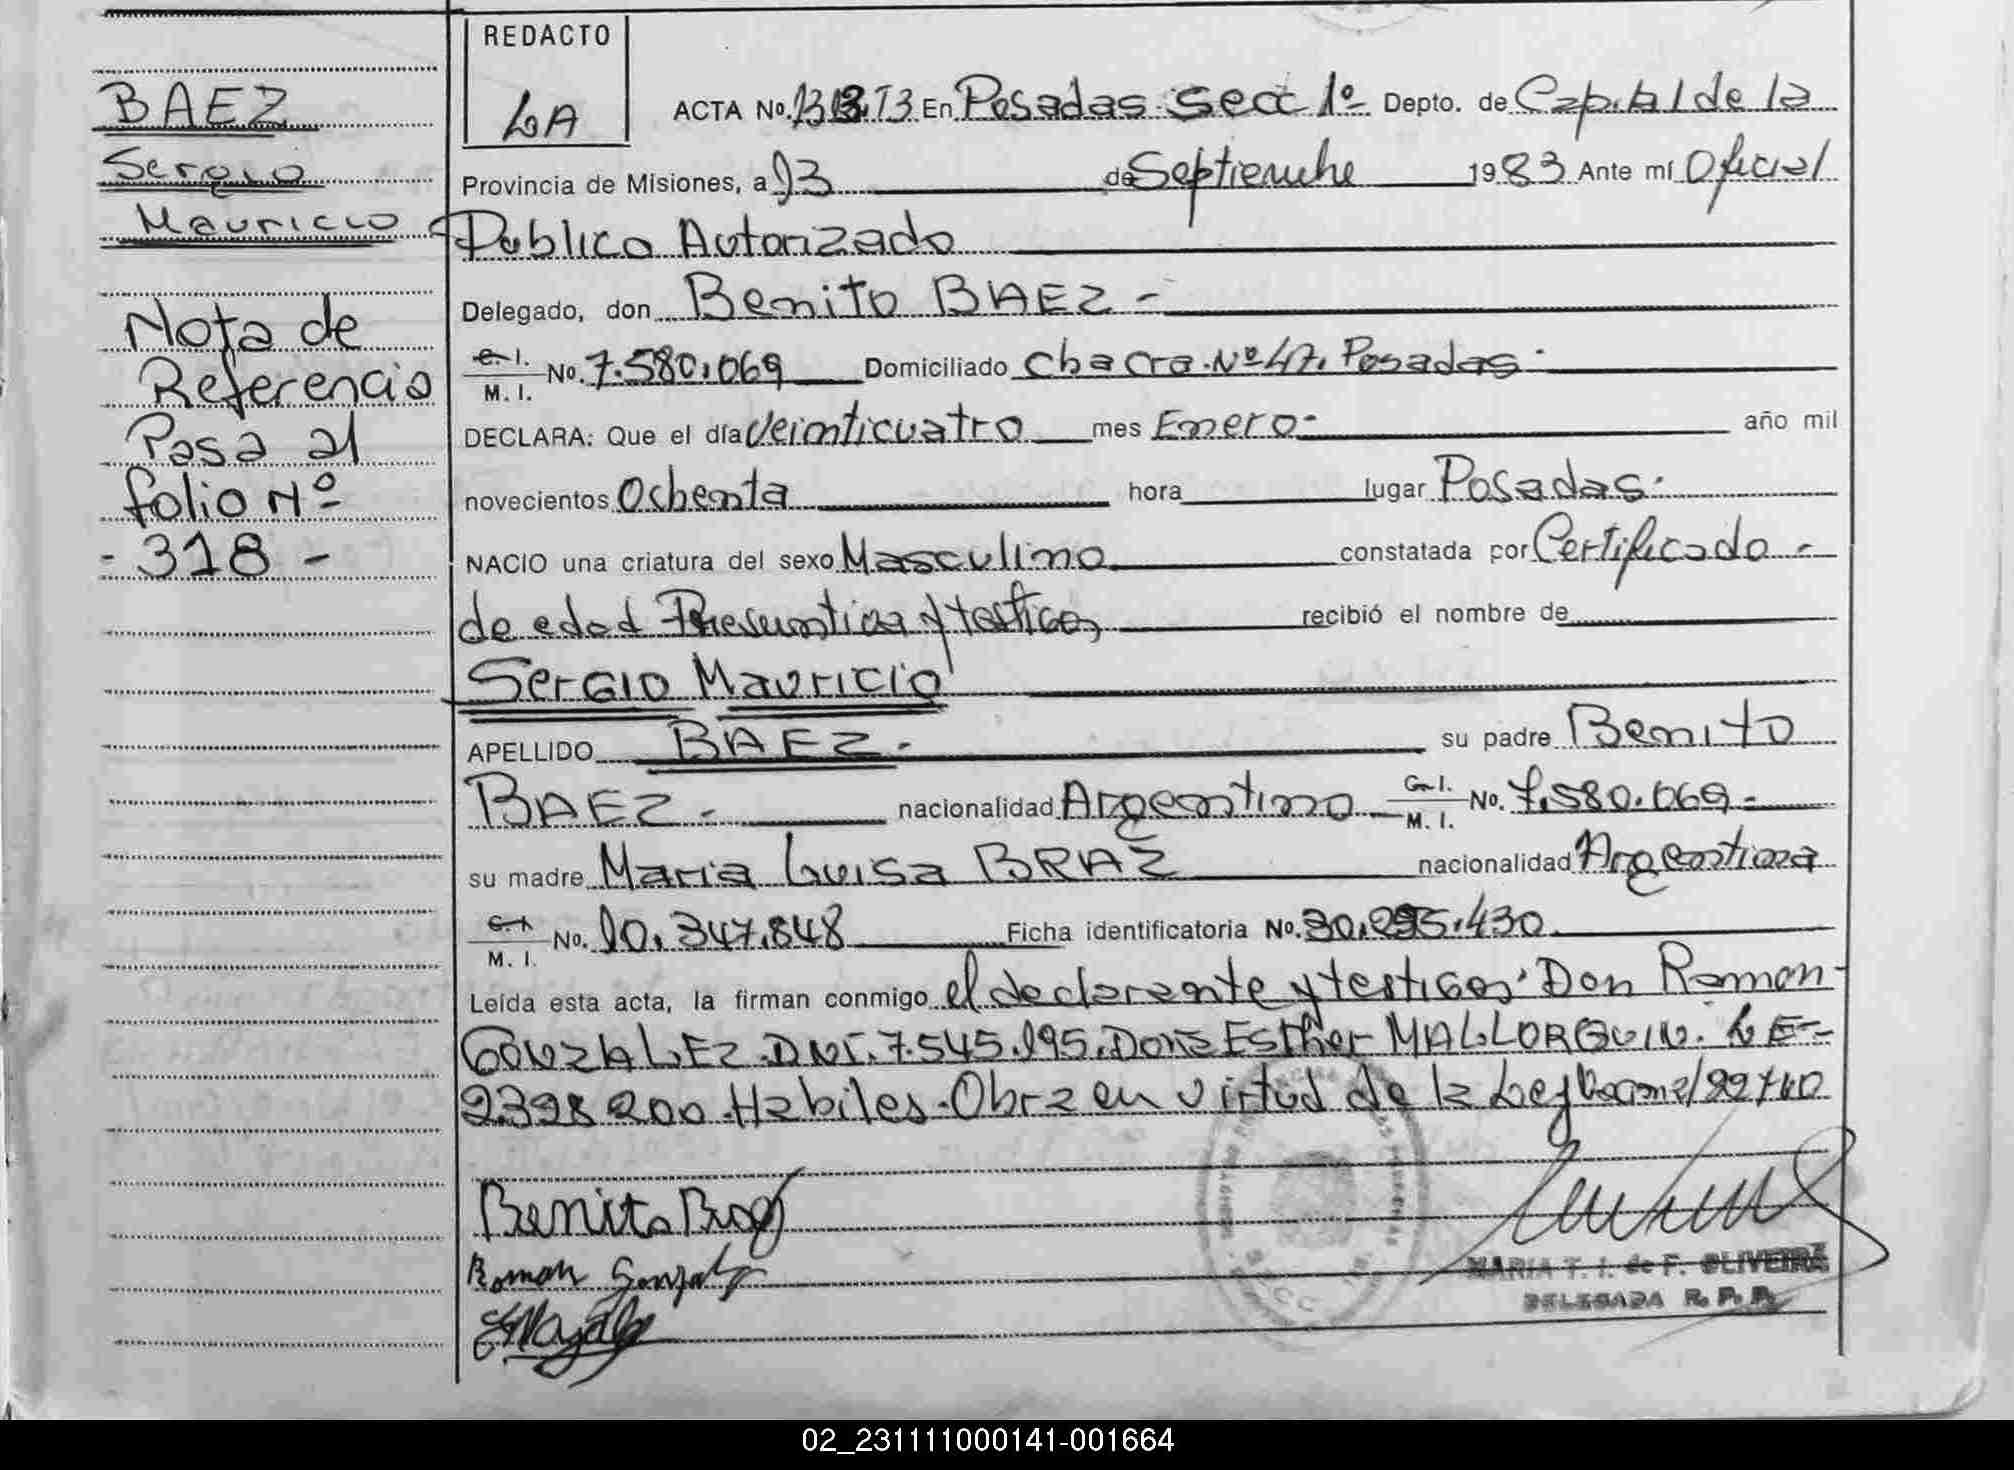 REDACTO
LA
ACTA No. En Posadas Secc 1º Depto. de Capital de la
BAEZ
Sergio
Mauricio
Provincia de Misiones, a 13 de Septiembre 1983 Ante mí Oficial
Publico Autorizado
Delegado, don Benito BAEZ -
C. I. M. I. No. 7.580.069 Domiciliado Chacra Nº 47. Posadas.-
DECLARA: Que el día Veinticuatro mes Enero - año mil
novecientos Ochenta hora lugar Posadas.
NACIO una criatura del sexo Masculino constatada por Certificado -
de edad Presuntiva y testigos recibió el nombre de
Sergio Mauricio
APELLIDO BAEZ - su padre Benito
BAEZ - nacionalidad Argentino C. I. M. I. No. 7.580.069 -
su madre Maria Luisa BRAZ nacionalidad Argentina
C. I. M. I. No. 10.347.848 Ficha identificatoria No.
Leída esta acta, la firman conmigo el declarante y testigos Don Ramon
GONZALEZ. DNI. 7.545.195. Doña Esther MALLORQUIN. LE-
2398200 Habiles. Obra en virtud de la Ley
Nota de
Referencia
Pasa al
folio Nº
- 318 -
Benito
Ramon Gonzalez
MARIA T. I. de F. OLIVEIRA
DELEGADA R. P. P.
02_231111000141-001664